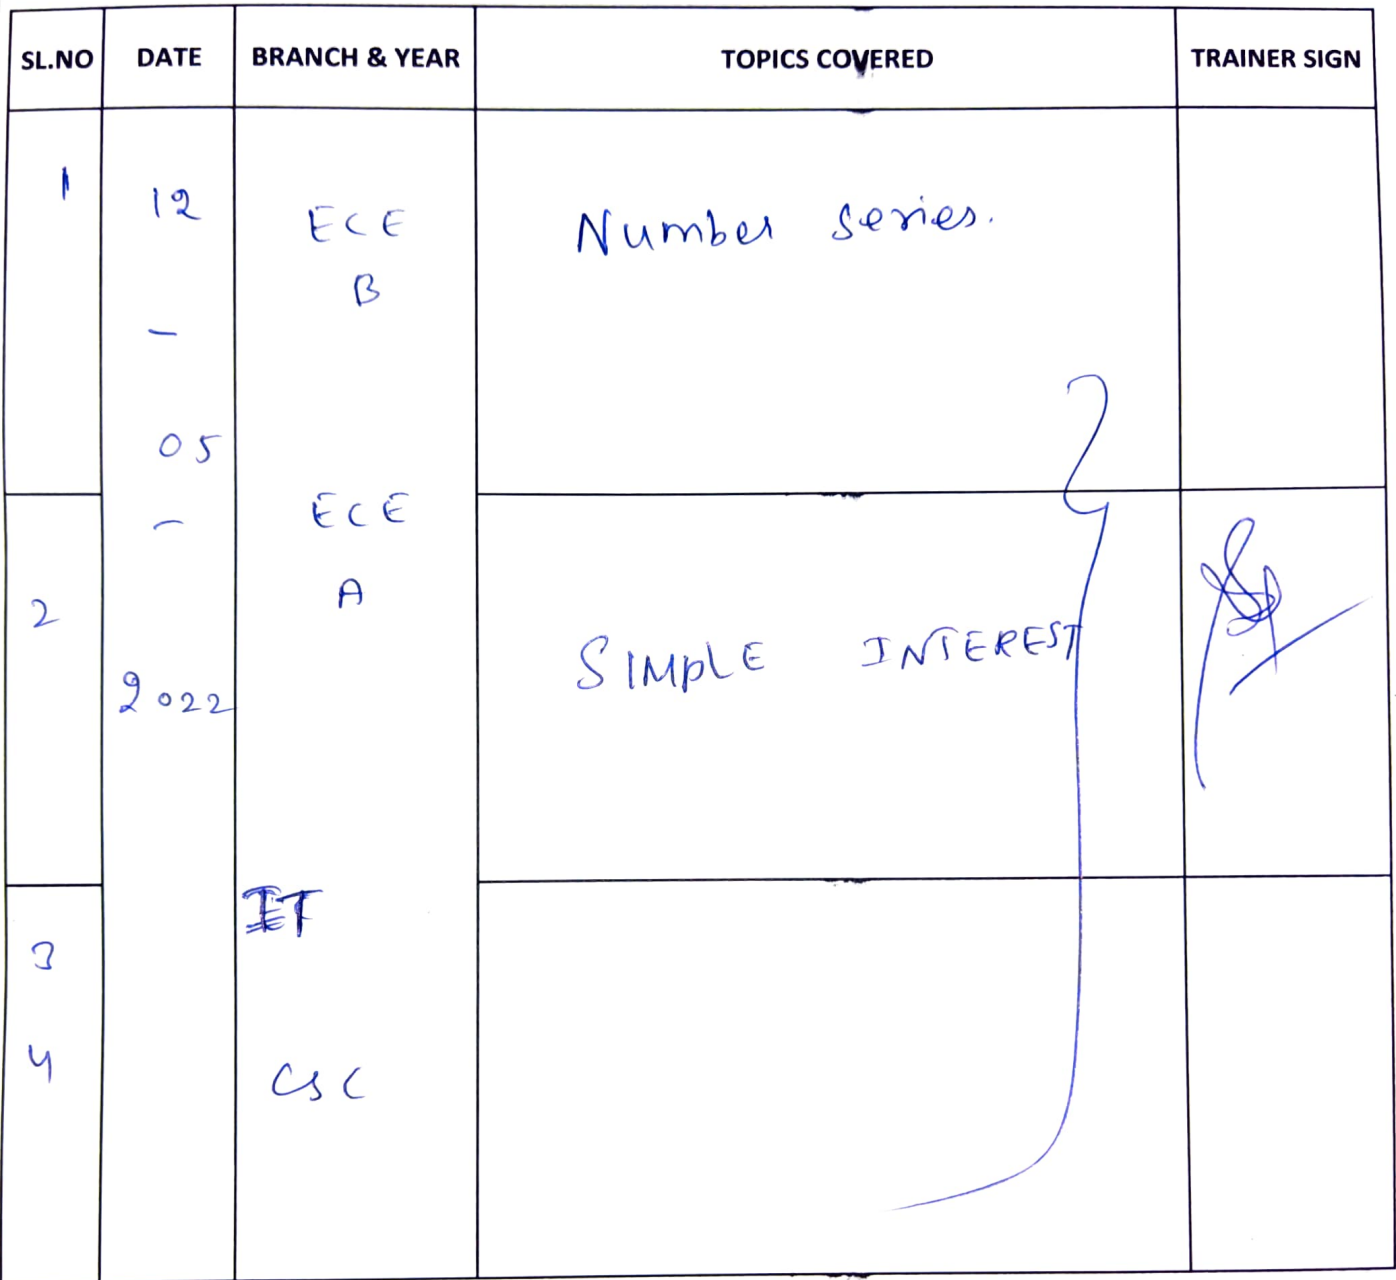 SL.NO DATE BRANCH & YEAR TOPICS COVERED TRAINER SIGN
1 12 ECE Number series.
B
-
05
- ECE
A
2 SIMPLE INTEREST
2022
IT
3
4 CSC